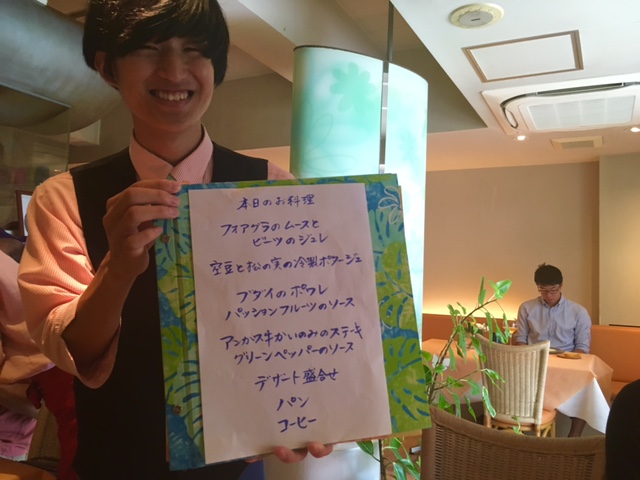 本日のお料理
フォアグラのムースと
ビーツのジュレ
空豆と松の実の冷製ポタージュ
ブダイのポワレ
パッションフルーツのソース
アンガス牛かいのみのステーキ
グリーンペッパーのソース
デザート盛合せ
パン
コーヒー